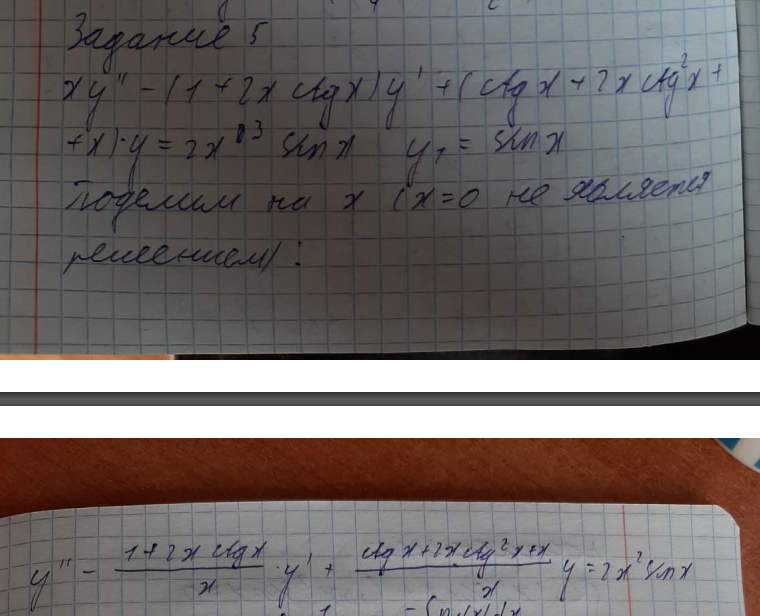 Задание 5
xy'' - (1 + 2x ctgx)y' + (ctgx + 2x ctg²x +
+ x)·y = 2x³ sinx    y₁ = sinx
Поделим на x (x=0 не является
решением):
y'' - (1+2x ctgx)/x · y' + (ctgx+2x·ctg²x+x)/x y = 2x² sinx